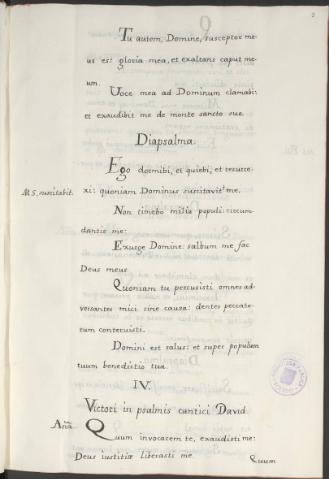 Tu autem, Domine, susceptor me-
us es: gloria mea, et exaltans caput me-
um.
Uoce mea ad Dominum clamabi:
et exaudibit me de monte sancto suo
Diapsalma.
Ego dormibi, et quiebi, et resurre-
M.S. suscitabit.
xi: quoniam Dominus suscitavit me.
Non timebo milia populi circum-
dantis me:
Exurge Domine: salbum me fac
Deus meus
Quoniam tu percusisti omnes ad-
versantes mici sine causa: dentes peccato-
rum conteruisti.
Domini est salus: et super populum
tuum benedictio tua.
IV.
Victori in psalmis cantici David
Aña.
Quum invocarem te, exaudisti me:
Deus iustitiæ liberasti me.
Quum